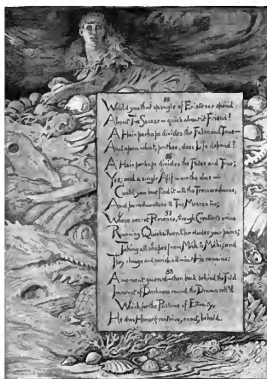 Would you that spangle of Existence spend
About The Secret — quick about it Friend!
A Hair perhaps divides the False and True —
And upon what, prithee, does Life depend?
A Hair perhaps divides the False and True;
Yes; and a single Alif were the clue —
Could you but find it — to the Treasure-house,
And peradventure to The Master too;
Whose secret Presence, through Creation's veins
Running Quicksilver-like eludes your pains;
Taking all shapes from Máh to Máhi; and
They change and perish all — but He remains;
A moment guess'd — then back behind the Fold
Immerst of Darkness round the Drama roll'd
Which for the Pastime of Eternity
He does Himself contrive, enact, behold.